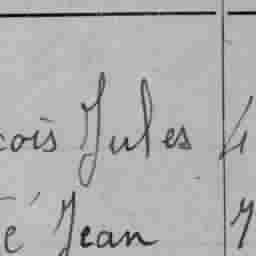 çois Jules 4
é Jean 7